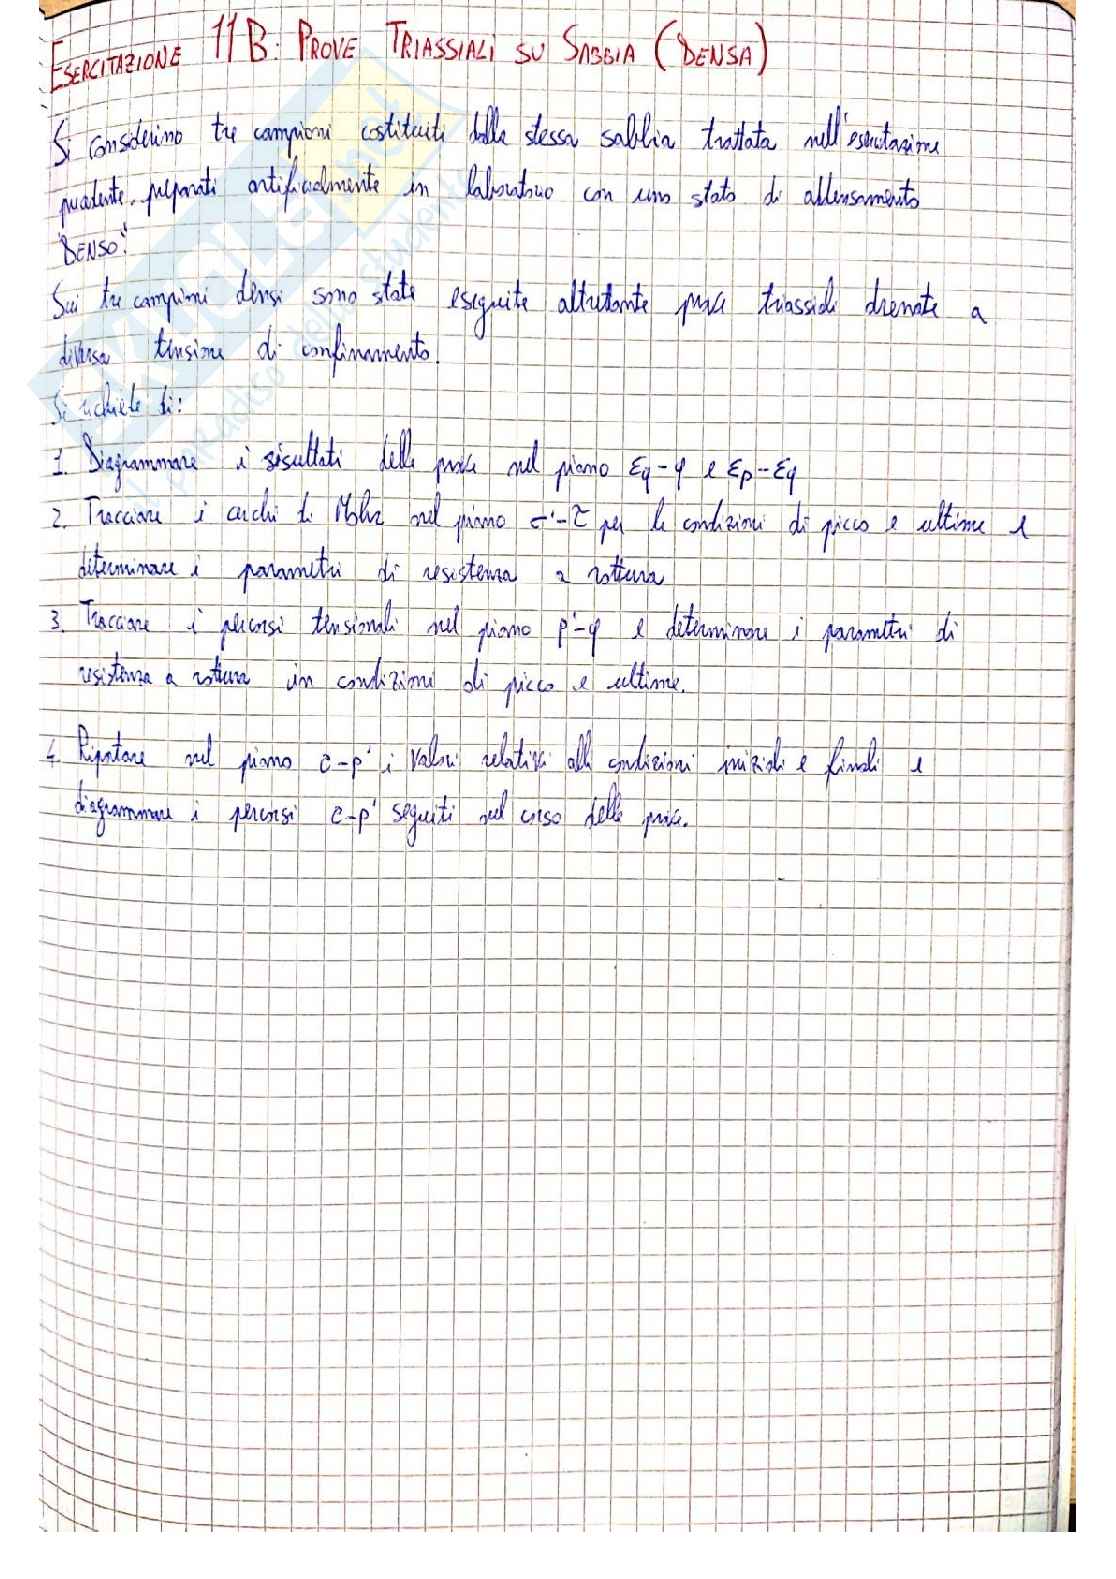 ESERCITAZIONE 11B: PROVE TRIASSIALI SU SABBIA (DENSA)
Si considerino tre campioni costituiti dalla stessa sabbia trattata nell'esercitazione
precedente, preparati artificialmente in laboratorio con uno stato di addensamento
"DENSO".
Sui tre campioni densi sono state eseguite altrettante prove triassiali drenate a
diversa tensione di confinamento.
Si richiede di:
1. Diagrammare i risultati delle prove nel piano εq-q e εp-εq
2. Tracciare i cerchi di Mohr nel piano σ'-τ per le condizioni di picco e ultime e
determinare i parametri di resistenza a rottura
3. Tracciare i percorsi tensionali nel piano p'-q e determinare i parametri di
resistenza a rottura in condizioni di picco e ultime.
4. Riportare nel piano e-p' i valori relativi alle condizioni iniziali e finali e
diagrammare i percorsi e-p' seguiti nel corso delle prove.